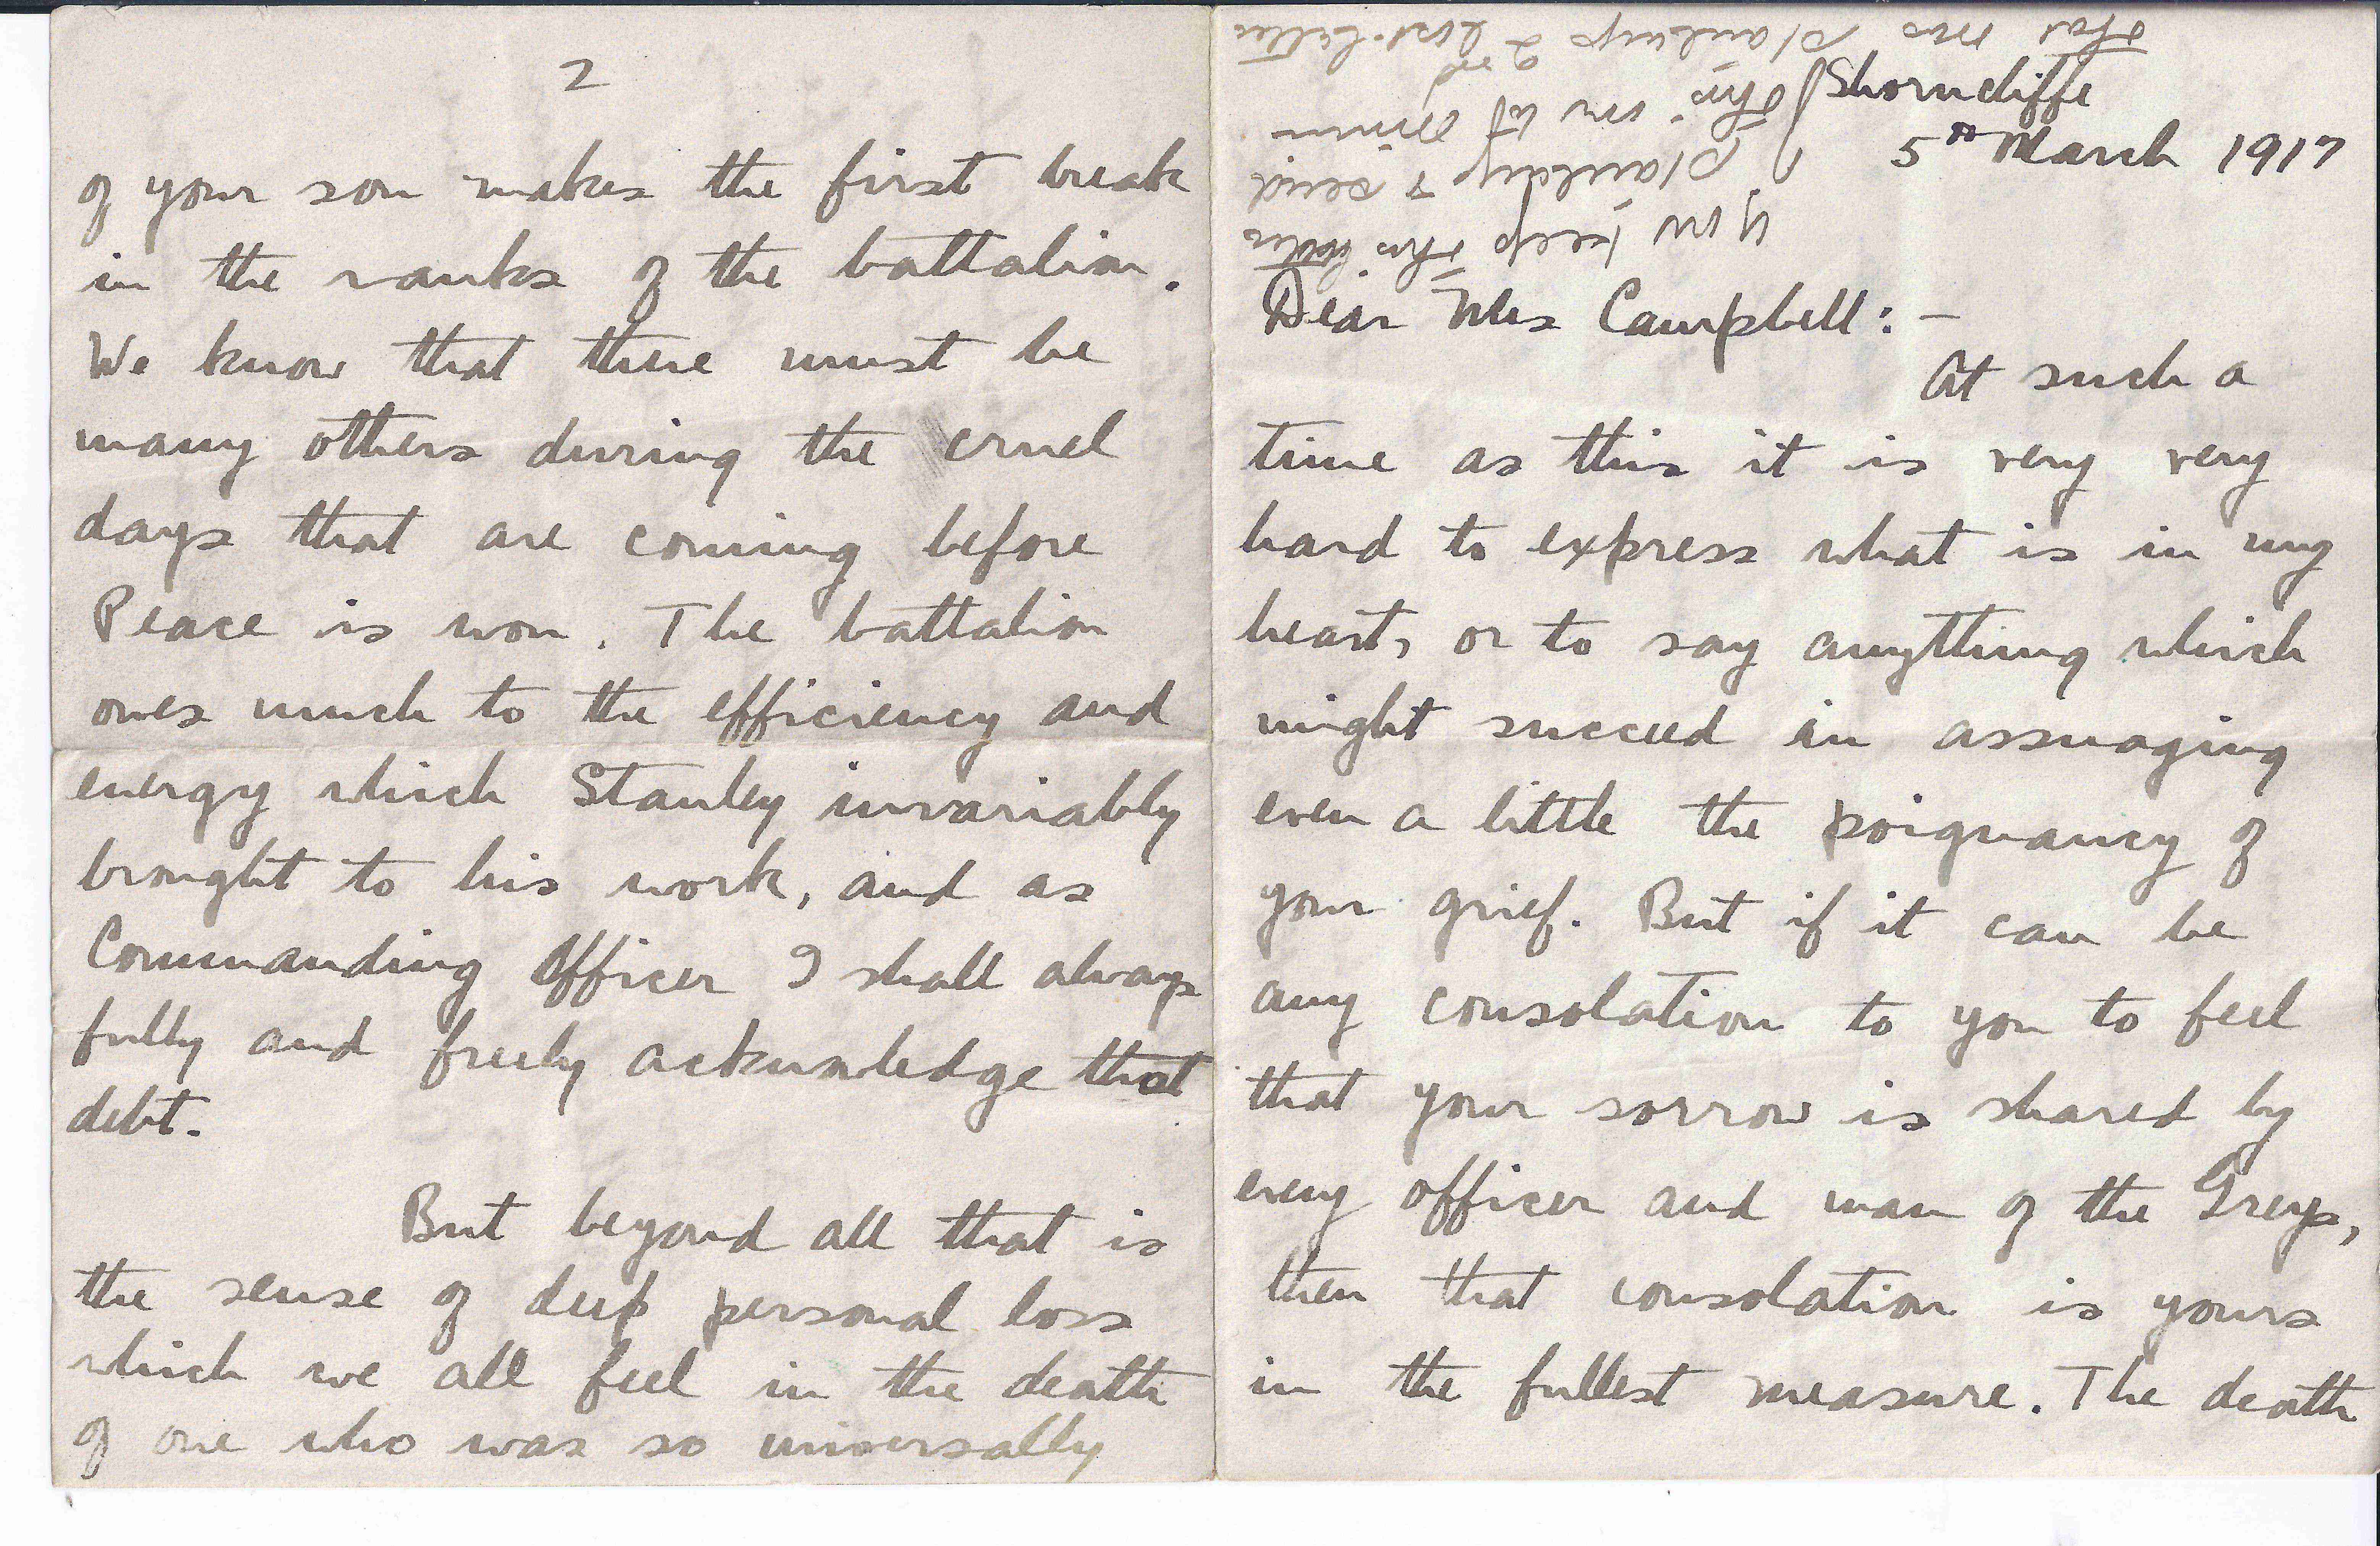 keep this letter
& send
this on to
last letter
Shorncliffe
5th March 1917
Dear Mrs Campbell: -
At such a
time as this it is very very
hard to express what is in my
heart, or to say anything which
might succeed in assuaging
even a little the poignancy of
your grief. But if it can be
any consolation to you to feel
that your sorrow is shared by
every officer and man of the Greys,
then that consolation is yours
in the fullest measure. The death
2
of your son makes the first break
in the ranks of the battalion.
We know that there must be
many others during the cruel
days that are coming before
Peace is won. The battalion
owes much to the efficiency and
energy which Stanley invariably
brought to his work, and as
Commanding Officer I shall always
fully and freely acknowledge that
debt.
But beyond all that is
the sense of deep personal loss
which we all feel in the death
of one who was so universally